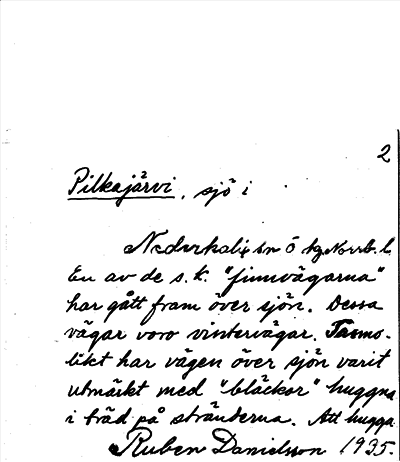 2
Pilkajärvi, sjö i
Nederkalix sn Ö hg Norrb. l.
En av de s.k. "finnvägarna"
har gått fram över sjön. Dessa
vägar voro vintervägar. Tasmo-
likt har vägen över sjön varit
utmärkt med "bläckor" huggna
i träd på stränderna. Att hugga
Ruben Danielsson 1935.